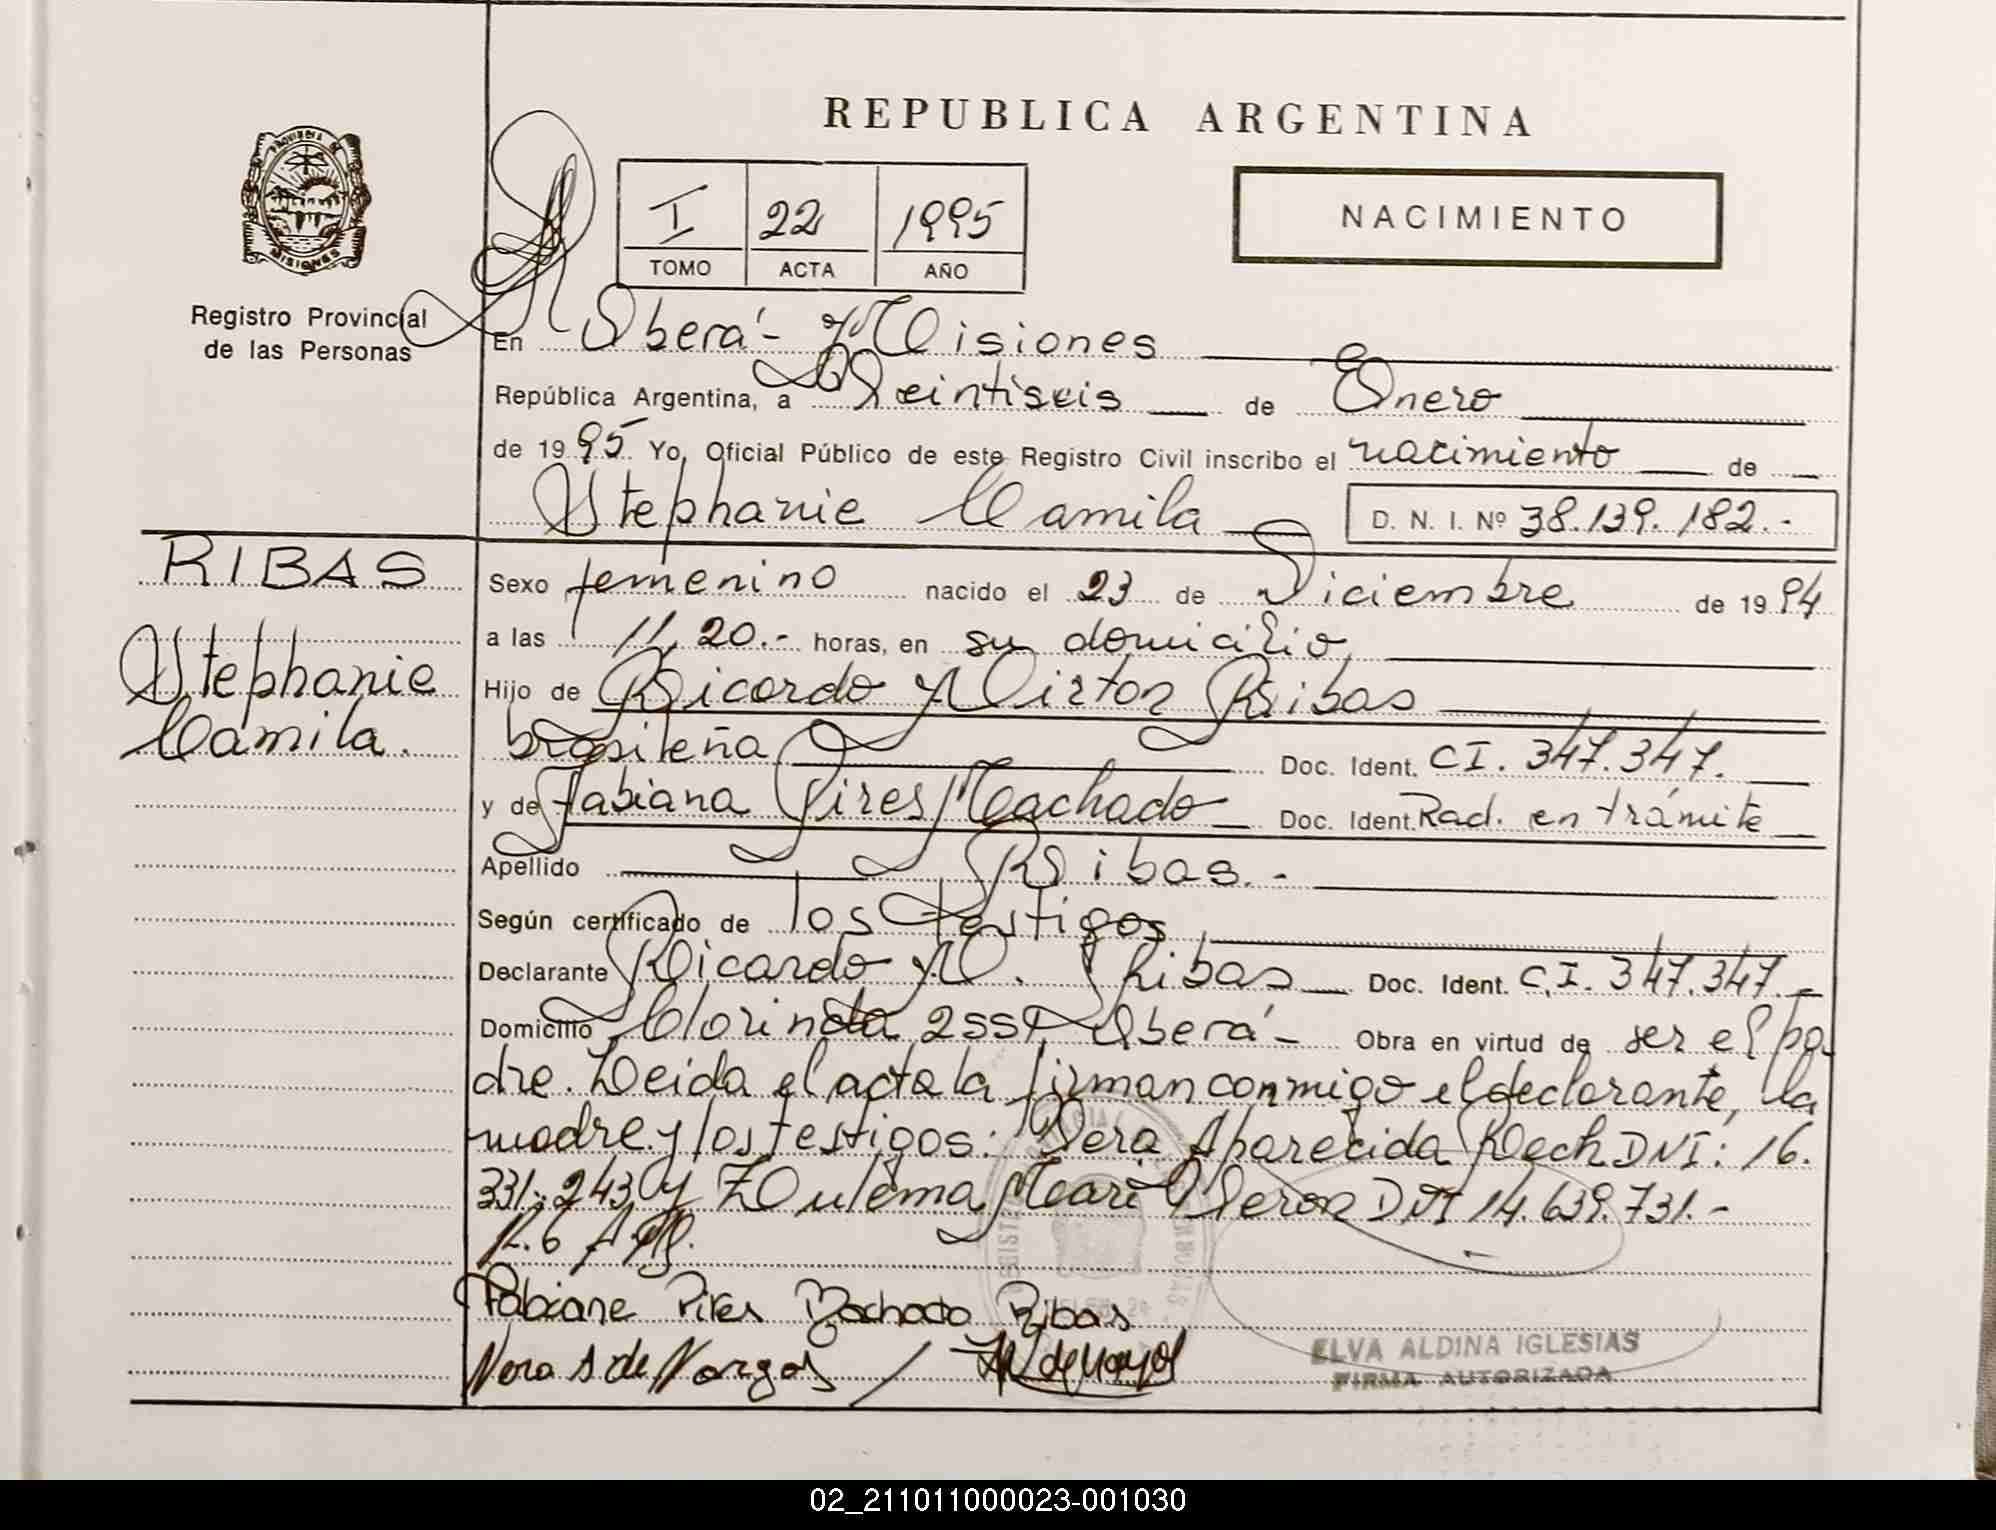 REPUBLICA ARGENTINA
PROVINCIA DE
MISIONES
Registro Provincial
de las Personas
I 22 1995
TOMO ACTA AÑO
NACIMIENTO
En Oberá - Misiones
República Argentina, a Veintiseis de Enero
de 1995 Yo, Oficial Público de este Registro Civil inscribo el nacimiento de
Stephanie Camila D. N. I. Nº 38.139.182.-
RIBAS
Stephanie
Camila.
Sexo femenino nacido el 23 de Diciembre de 1994
a las 11,20.- horas, en su domicilio
Hijo de Ricardo Mirton Ribas
brasileña Doc. Ident. CI. 347.347.
y de Fabiana Pires Machado Doc. Ident. Rad. en trámite
Apellido Ribas.-
Según certificado de los testigos
Declarante Ricardo M. Ribas Doc. Ident. C.I. 347.347.-
Domicilio Clorinda Oberá - Obra en virtud de ser el pa
dre. Leida el acta la firman conmigo el declarante, la
madre y los testigos: Vera Aparecida DNI: 16.
331.243 y Zulema DNI 14.639.731.-
Fabiane Pires Machado Ribas
Vera A de Vargas /
ELVA ALDINA IGLESIAS
FIRMA AUTORIZADA
02_211011000023-001030